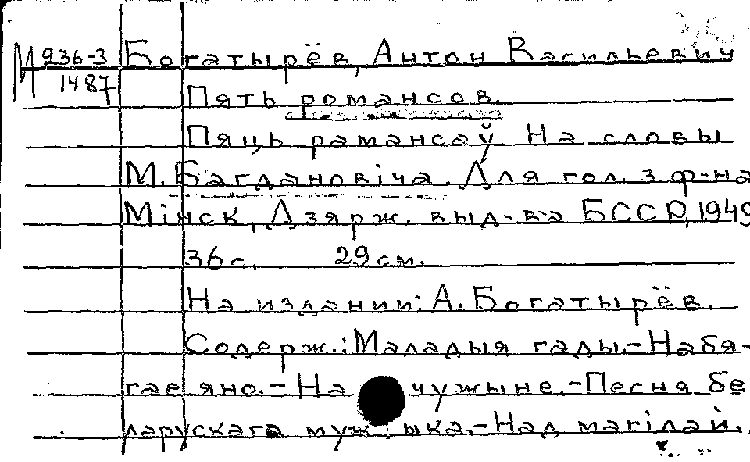 М 936-3 Богатырёв, Антон Васильевич
1487
Пять романсов.
Пяць рамансаў На словы
М. Багдановіча. Для гол. з ф-на
Мінск, Дзярж. выд-ва БССР, 1949
36 с. 29 см.
На издании: А. Богатырёв.
Содерж.: Маладыя гады.-Набя-
гае яно.-На чужыне.-Песня бе
ларускага мужыка.-Над магілай.